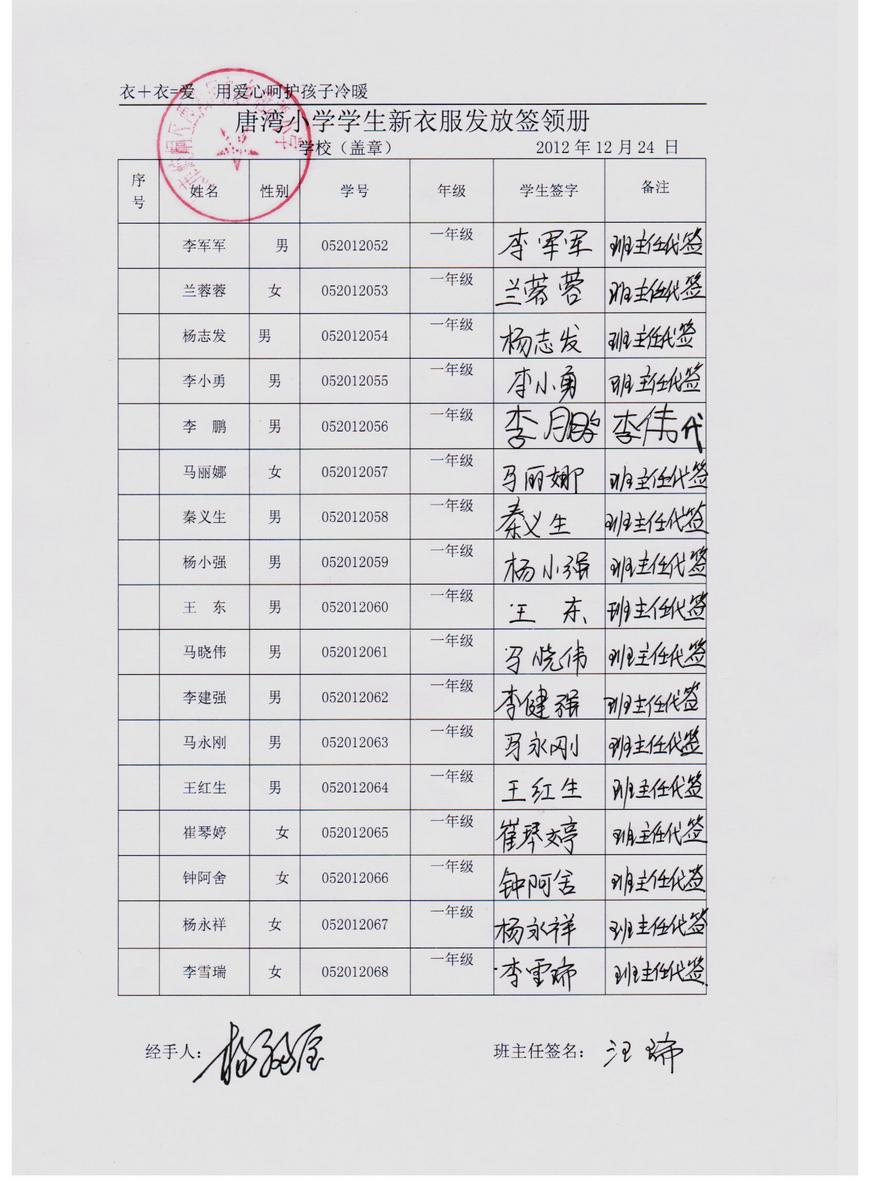 衣＋衣=爱 用爱心呵护孩子冷暖
唐湾小学学生新衣服发放签领册
学校（盖章） 2012 年 12 月 24 日
序号 姓名 性别 学号 年级 学生签字 备注
李军军 男 052012052 一年级 李军军 班主任代签
兰蓉蓉 女 052012053 一年级 兰蓉蓉 班主任代签
杨志发 男 052012054 一年级 杨志发 班主任代签
李小勇 男 052012055 一年级 李小勇 班主任代签
李 鹏 男 052012056 一年级 李鹏 李伟代
马丽娜 女 052012057 一年级 马丽娜 班主任代签
秦义生 男 052012058 一年级 秦义生 班主任代签
杨小强 男 052012059 一年级 杨小强 班主任代签
王 东 男 052012060 一年级 王 东 班主任代签
马晓伟 男 052012061 一年级 马晓伟 班主任代签
李建强 男 052012062 一年级 李健强 班主任代签
马永刚 男 052012063 一年级 马永刚 班主任代签
王红生 男 052012064 一年级 王红生 班主任代签
崔琴婷 女 052012065 一年级 崔琴婷 班主任代签
钟阿舍 女 052012066 一年级 钟阿舍 班主任代签
杨永祥 女 052012067 一年级 杨永祥 班主任代签
李雪瑞 女 052012068 一年级 李雪瑞 班主任代签
经手人： 班主任签名： 汪瑞